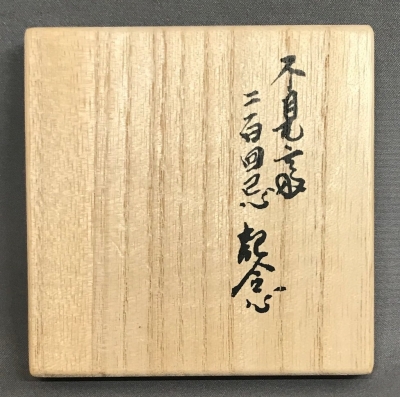 不見斎
二百回忌 記念